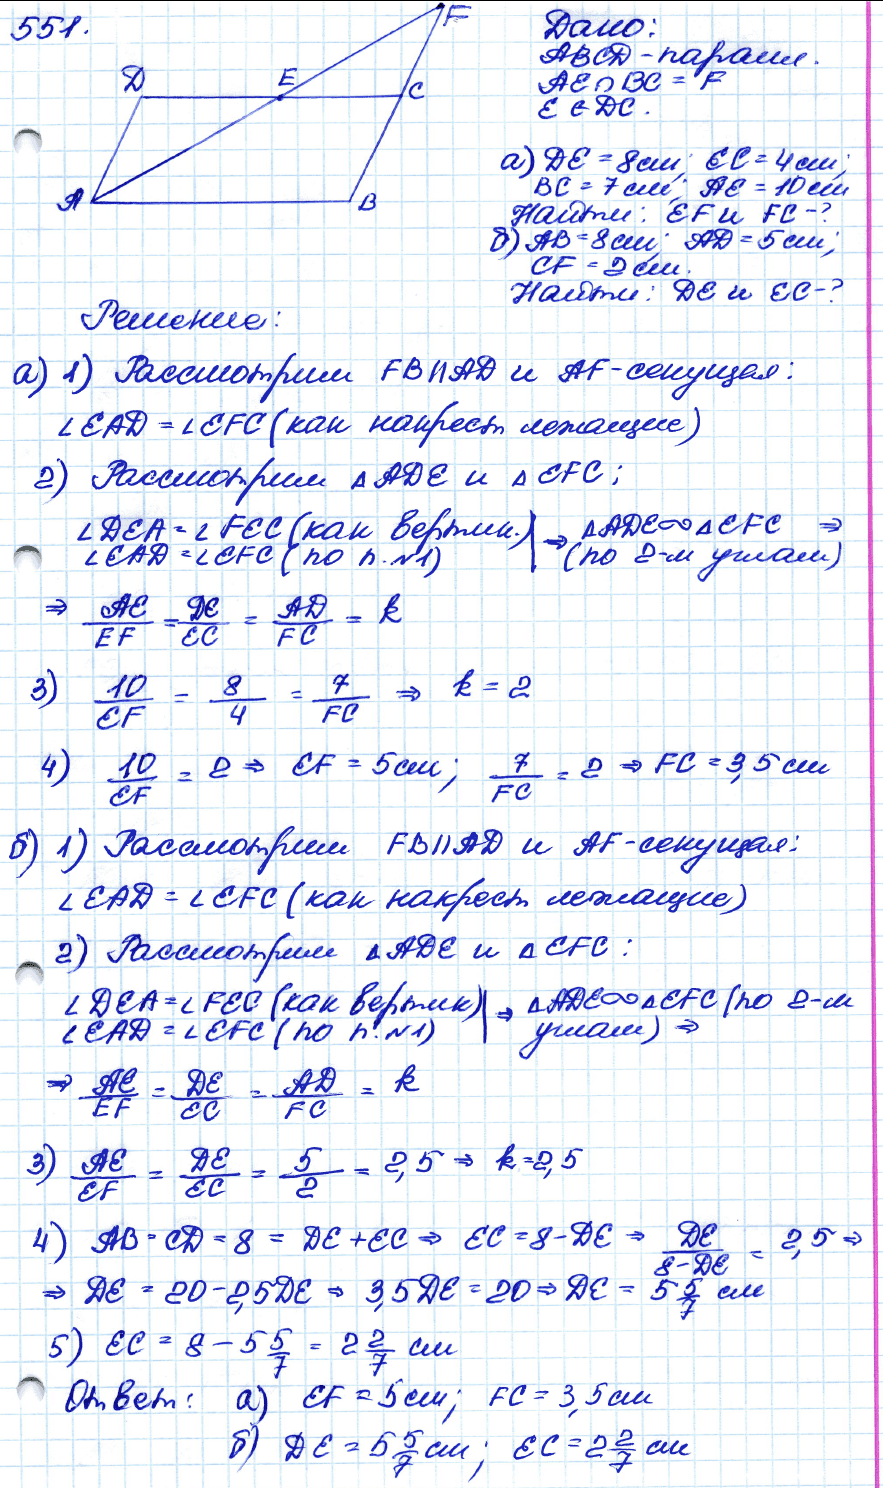 551.
F
D E C
A B
Дано:
ABCD - паралл.
AE ∩ BC = F
E ∈ DC.
а) DE = 8см; EC = 4см;
BC = 7см; AE = 10см
Найти: EF и FC - ?
б) AB = 8см; AD = 5см;
CF = 2см.
Найти: DE и EC - ?
Решение:
а) 1) Рассмотрим FB || AD и AF - секущая:
∠EAD = ∠EFC (как накрест лежащие)
2) Рассмотрим △ADE и △EFC;
∠DEA = ∠FEC (как вертик.) | ⇒ △ADE ∞ △EFC ⇒
∠EAD = ∠EFC (по п. №1) (по 2-м углам)
⇒ AE/EF = DE/EC = AD/FC = k
3) 10/EF = 8/4 = 7/FC ⇒ k = 2
4) 10/EF = 2 ⇒ EF = 5см; 7/FC = 2 ⇒ FC = 3,5см
б) 1) Рассмотрим FB || AD и AF - секущая:
∠EAD = ∠EFC (как накрест лежащие)
2) Рассмотрим △ADE и △EFC:
∠DEA = ∠FEC (как вертик) | ⇒ △ADE ∞ △EFC (по 2-м
∠EAD = ∠EFC (по п. №1) углам) ⇒
⇒ AE/EF = DE/EC = AD/FC = k
3) AE/EF = DE/EC = 5/2 = 2,5 ⇒ k = 2,5
4) AB = CD = 8 = DE + EC ⇒ EC = 8 - DE ⇒ DE/(8-DE) = 2,5 ⇒
⇒ DE = 20 - 2,5DE ⇒ 3,5DE = 20 ⇒ DE = 5 5/7 см
5) EC = 8 - 5 5/7 = 2 2/7 см
Ответ: а) EF = 5см; FC = 3,5см
б) DE = 5 5/7 см; EC = 2 2/7 см